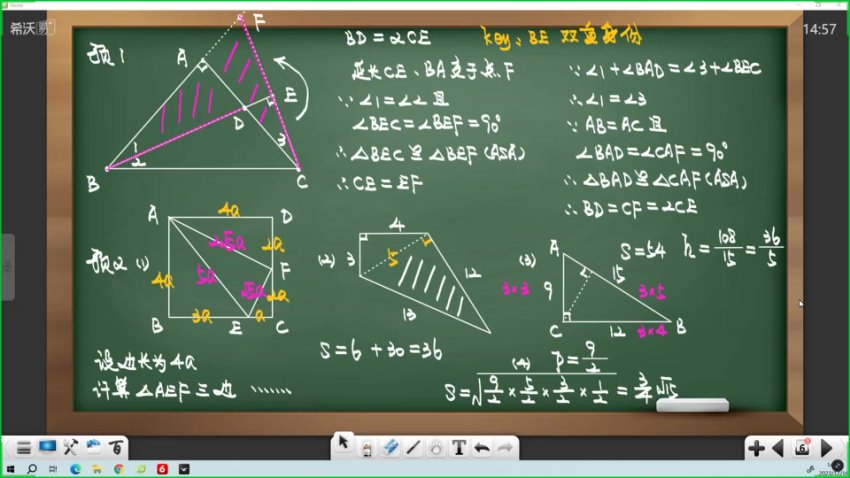 Note
希沃易+
14:57
预1
F
A
E
D
1
2
3
B
C
BD=2CE
延长CE、BA交于点F
∵∠1=∠2且
∠BEC=∠BEF=90°
∴△BEC≌△BEF(ASA)
∴CE=EF
key: BE 双重身份
∵∠1+∠BAD=∠3+∠BEC
∴∠1=∠3
∵AB=AC且
∠BAD=∠CAF=90°
∴△BAD≌△CAF(ASA)
∴BD=CF=2CE
预2 (1)
4a
A
D
2√5a
2a
F
4a
5a
√5a
2a
B
3a
E
a
C
设边长为4a
计算△AEF三边 ……
(2)
4
3
5
12
13
S=6+30=36
(3)
A
S=54
h=108/15=36/5
15
3×3
9
3×5
C
12
3×4
B
(4)
P=9/2
S=√(9/2×5/2×3/2×1/2)=3/4√15
T
6